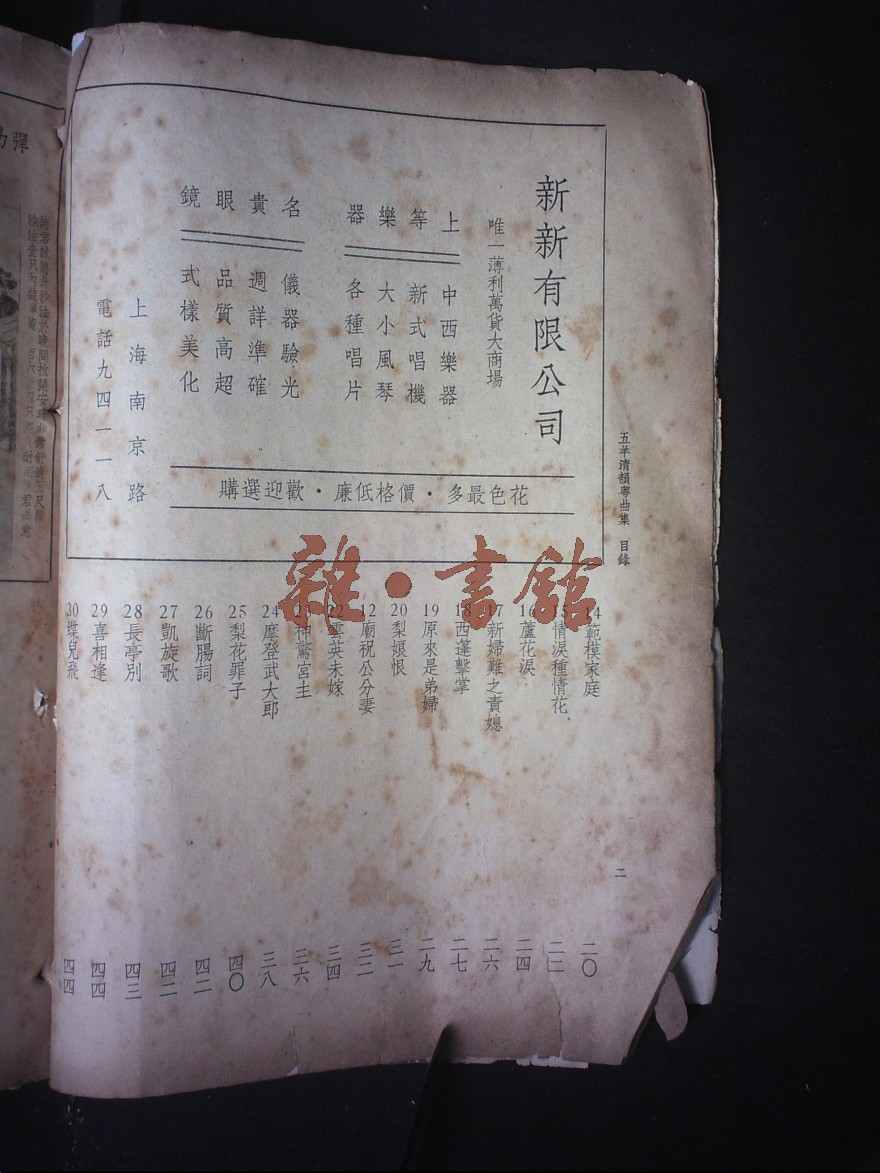 新新有限公司
唯一薄利萬貨大商場
上等樂器
中西樂器
新式唱機
大小風琴
各種唱片
名貴眼鏡
儀器驗光
週詳準確
品質高超
式樣美化
上海南京路
電話九四一一八
購選迎歡·廉低格價·多最色花
五羊清韻粵曲集 目錄
二
14範模家庭 二〇
15情淚種情花 二二
16蘆花淚 二四
17新婦難之責媳 二六
18西蓬擊掌 二七
19原來是弟婦 二九
20梨娘恨 三一
12廟祝公分妻 三二
22雲英未嫁 三四
23神鶯宮主 三六
24摩登武大郎 三八
25梨花罪子 四〇
26斷腸詞 四二
27凱旋歌 四二
28長亭別 四三
29喜相逢 四四
30蝶兒飛 四四
雜·書館